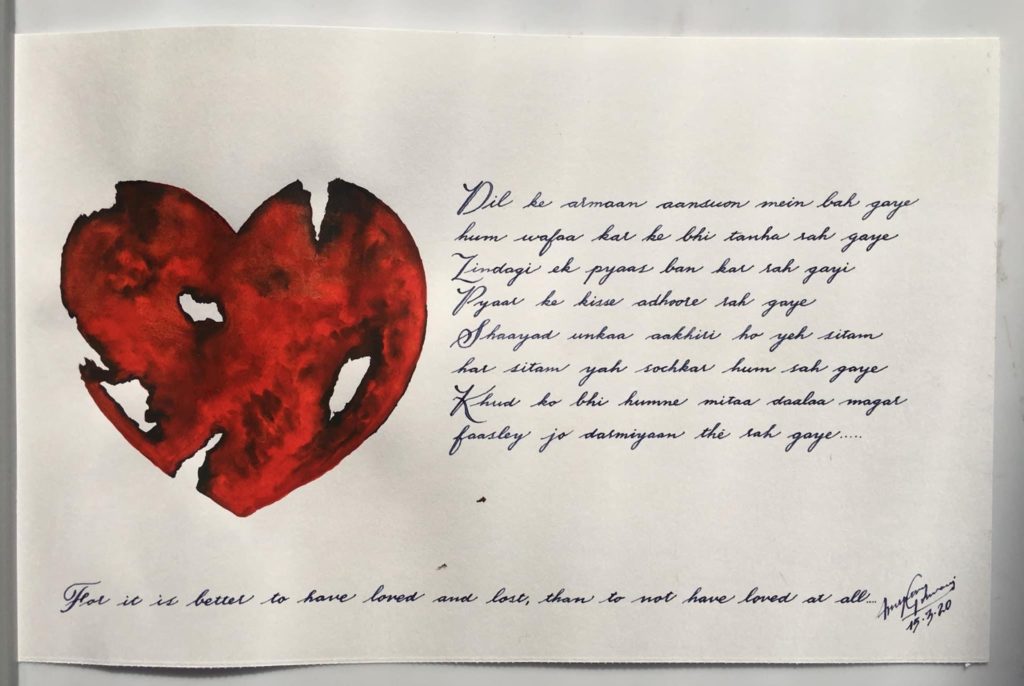 Dil ke armaan aansuon mein bah gaye
hum wafaa kar ke bhi tanha rah gaye
Zindagi ek pyaas ban kar rah gayi
Pyaar ke kisse adhoore rah gaye
Shaayad unkaa aakhiri ho yeh sitam
har sitam yah sochkar hum sah gaye
Khud ko bhi humne mitaa daalaa magar
faasley jo darmiyaan thé rah gaye.....
For it is better to have loved and lost, than to not have loved at all....
15.3.20